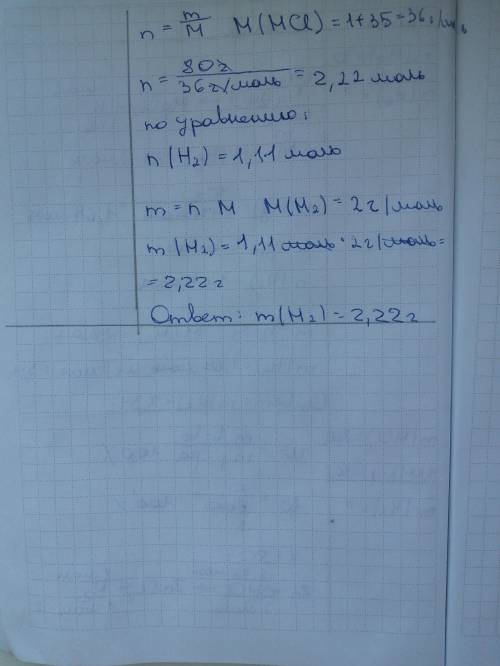 n = m/M M(HCl) = 1+35 = 36 г/моль
n = 80г/36г/моль = 2,22 моль
по уравнению:
n(H₂) = 1,11 моль
m = n M M(H₂) = 2г/моль
m(H₂) = 1,11 моль · 2г/моль =
= 2,22 г
Ответ: m(H₂) = 2,22г